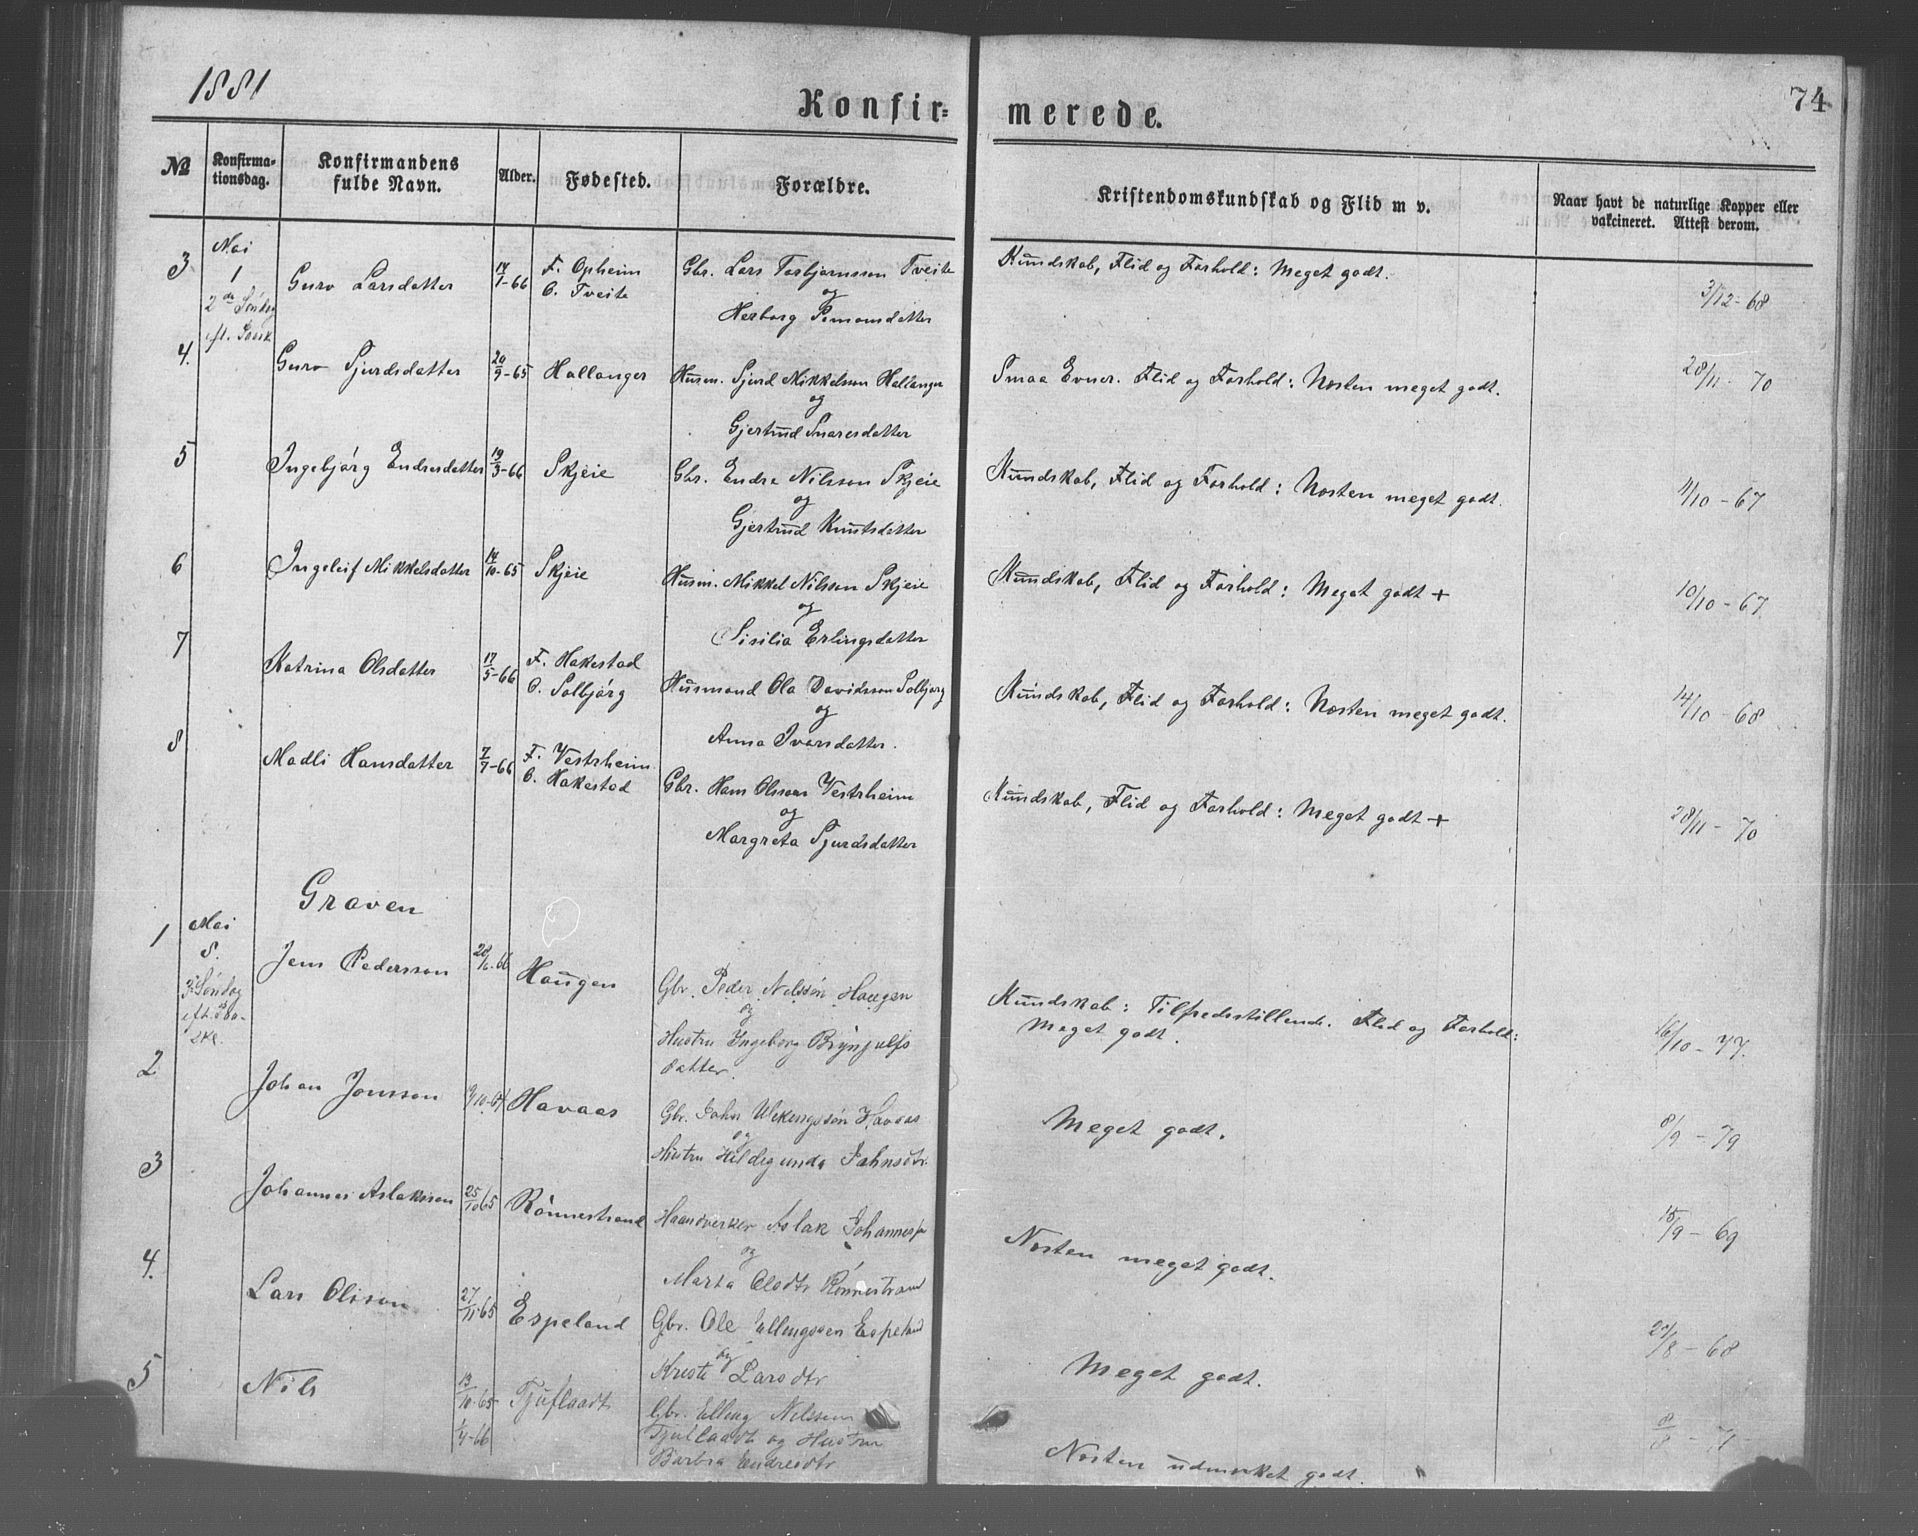 1881
Konfir= merede.
74
№
Konfirma-
tionsdag.
Konfirmandens
fulde Navn.
Alder.
Fødested.
Forældre.
Kristendomskundskab og Flid m v.
Naar havt de naturlige Kopper eller
vakcineret. Attest derom.
3 Mai
1
2de Søndag
Guro Larsdatter
14/1-66
F. Opheim
O. Tveite
Gbr. Lars Torbjørnsson Tveite
og
Herborg
Kundskab, Flid og Forhold: Meget godt.
3/12-68
4. Guro Sjurdsdatter
20/9-65
Hallanger
Husm. Sjurd Mikkelsson Hallanger
og
Gjertrud Snaresdatter
Smaa Evner. Flid og Forhold: Næsten meget godt.
28/11 - 70
5 Ingebjørg Endresdatter
19/3-66
Skjeie
Gbr. Endre Nilsson Skjeie
og
Gjertrud Knutsdatter
Kundskab, Flid og Forhold: Næsten meget godt.
11/10-67
6 Ingeleif Mikkelsdatter
14/10-65
Skjeie
Husm. Mikkel Nilsson Skjeie
og
Sisilia Erlingsdatter
Kundskab, Flid og Forhold: Meget godt +
10/10-67
7 Katrina Olsdatter
17/5-66
F. Hakestad
O. Solbjørg
Husmand Ola Davidsson Solbjørg
og
Anna Ivarsdatter.
Kundskab, Flid og Forhold: Næsten meget godt.
14/10-68
8 Madli Hansdatter
7/7-66
F. Vestrheim
O. Hakestad
Gbr. Hans Olsson Vestrheim
og
Margreta Sjurdsdatter
Kundskab, Flid og Forhold: Meget godt +
28/11-70
Graven
1 Mai
8.
3. Søndag
eft. Paa-
ske.
Jens Pedersson
28/6-66
Haugen
Gbr. Peder Nilssön Haugen
og
Hustru Ingeborg Brynjulfs
datter.
Kundskab: Tilfredsstillende. Flid og Forhold:
Meget godt.
16/10-77.
2 Johan Jonsson
Havaas
Gbr. John Havaas
og
Hustru Hildegunda Johnsdtr.
Meget godt.
8/9-79
3 Johannes Aslaksson
25/10 65
Rönnestrand
Haandverker Aslak Johanness
og
Marta Olsdtr Rönnestrand
Næsten meget godt.
15/9-69
4. Lars Olsson
27/11-65
Espeland
Gbr. Ole Ellingssen Espeland
og
Kristi Larsdtr
Meget godt.
68
5 Nils
13/10-65
1/4-66
Tjuflaadt
Gbr. Elling Nilssen
Tjuflaadt og Hustru
Barbra Endresdtr
Næsten udmærket godt.